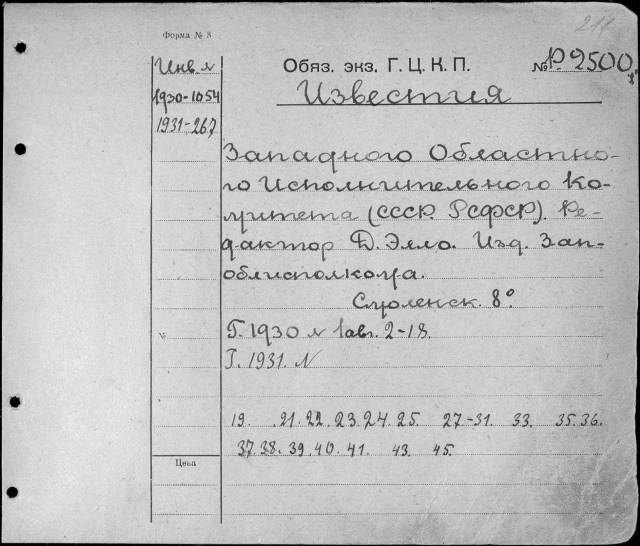 211
Форма № 3
Инв. №
Обяз. экз. Г. Ц. К. П.
№ Р-2500
Известия
1930-1054
1931-267
Западного Областно-
го Исполнительного Ко-
митета (СССР. РСФСР). Ре-
дактор Д. Элло. Изд. Зап-
облисполкома.
Смоленск. 8°
Г. 1930 № 1авг. 2-18.
Г. 1931. №
№
19. 21. 22. 23. 24. 25. 27-31. 33. 35. 36.
37. 38. 39. 40. 41. 43. 45.
Цена